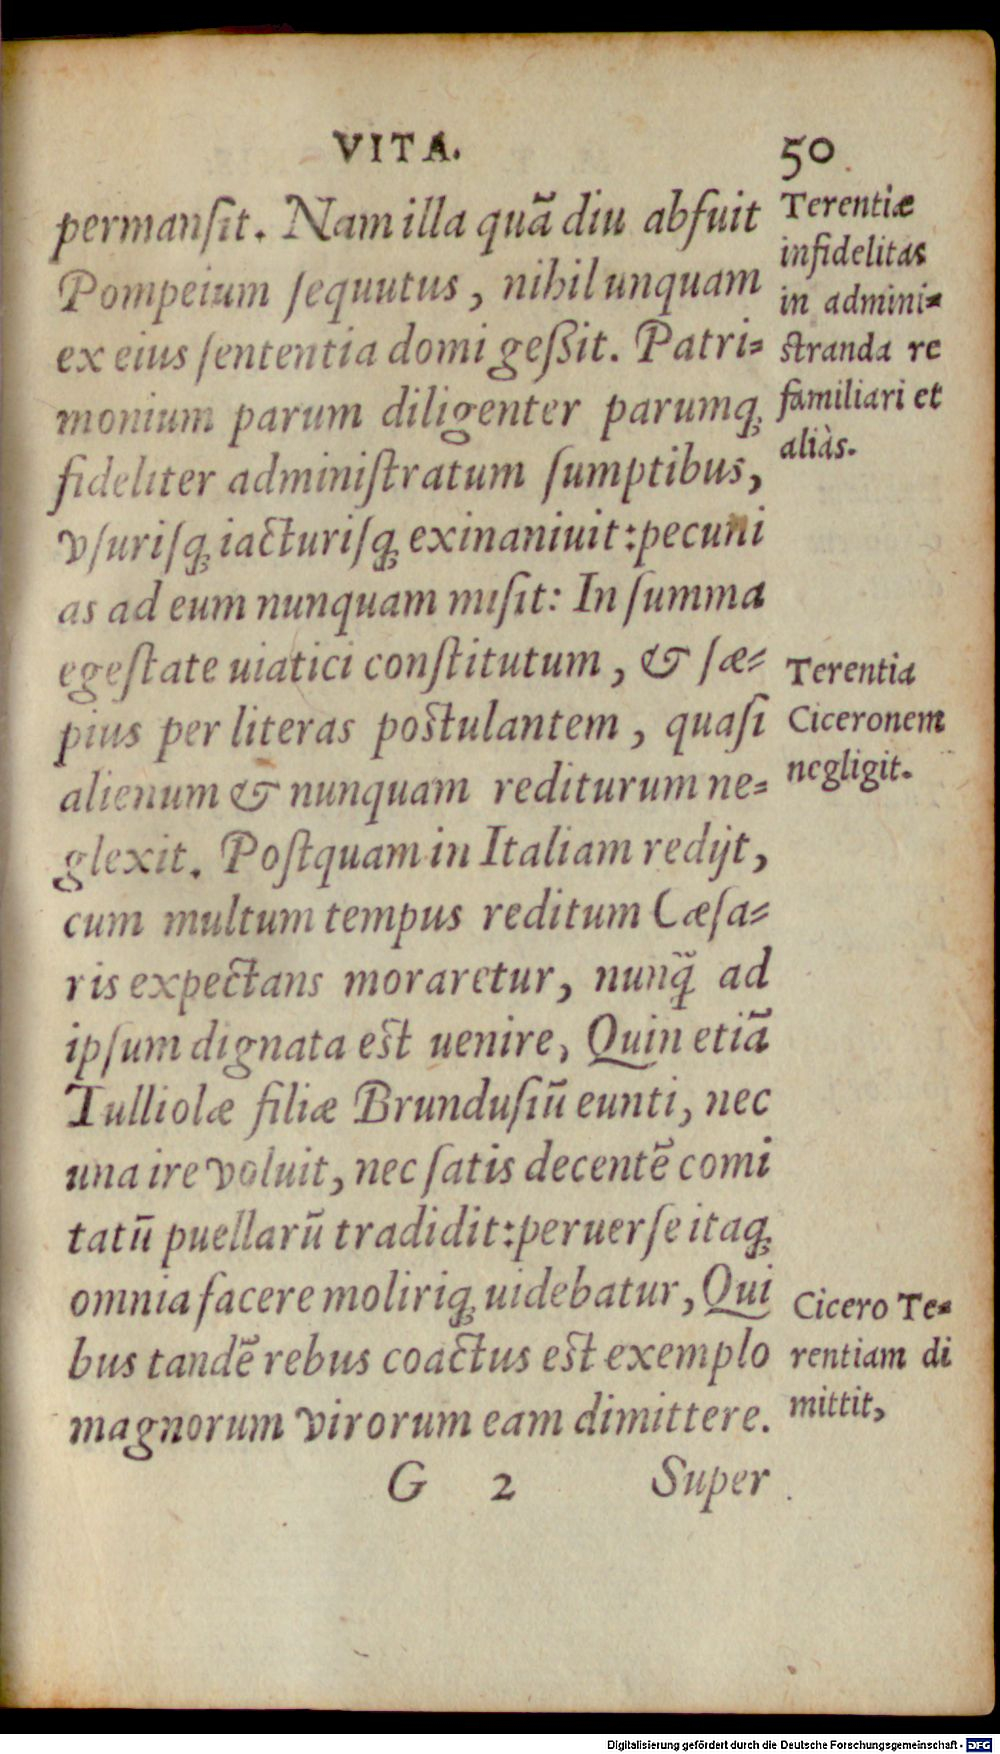 VITA. 50
permanſit. Nam illa quã diu abfuit
Pompeium ſequutus, nihil unquam
ex eius ſententia domi geßit. Patri-
monium parum diligenter parumq́;
fideliter adminiſtratum ſumptibus,
vſuriſq; iacturiſq; exinaniuit: pecuni
as ad eum nunquam miſit: In ſumma
egeſtate uiatici conſtitutum, & ſæ-
pius per literas poſtulantem, quaſi
alienum & nunquam rediturum ne-
glexit. Poſtquam in Italiam redijt,
cum multum tempus reditum Cæſa-
ris expectans moraretur, nunq̃ ad
ipſum dignata eſt uenire, Quin etiã
Tulliolæ filiæ Brunduſiũ eunti, nec
una ire voluit, nec ſatis decentẽ comi
tatũ puellarũ tradidit: peruerſe itaq;
omnia facere moliriq; uidebatur, Qui
bus tandẽ rebus coactus eſt exemplo
magnorum virorum eam dimittere.
G 2 Super
Terentiæ
infidelitas
in admini-
ſtranda re
familiari et
aliàs.
Terentia
Ciceronem
negligit.
Cicero Te-
rentiam di
mittit,
Digitalisierung gefördert durch die Deutsche Forschungsgemeinschaft - DFG